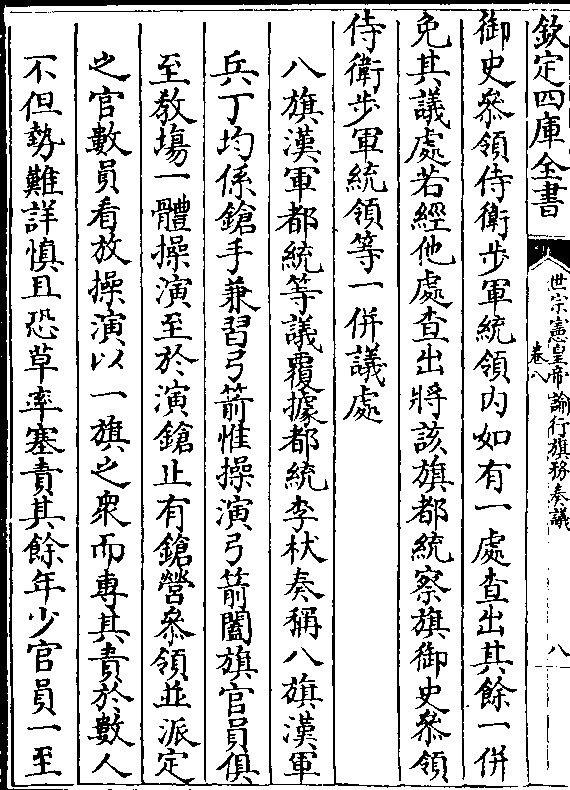 欽定四庫全書
世宗憲皇帝諭行旗務奏議
卷八
八
御史叅領侍衛步軍統領内如有一處查出其餘一併
免其議處若經他處查出將該旗都統察旗御史叅領
侍衛步軍統領等一併議處
八旗漢軍都統等議覆據都統李杕奏稱八旗漢軍
兵丁均係鎗手兼習弓箭惟操演弓箭闔旗官員俱
至教場一體操演至於演鎗止有鎗營叅領並派定
之官數員看放操演以一旗之衆而專其責於數人
不但勢難詳慎且恐草率塞責其餘年少官員一至